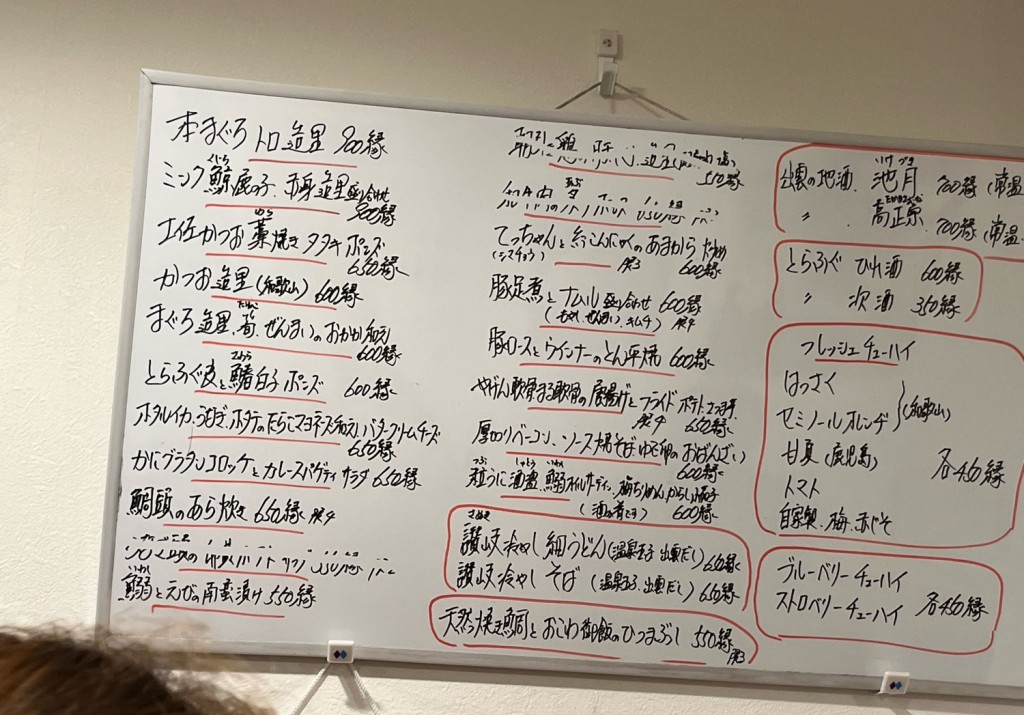 本まぐろトロ造里 900縁
くじら
ミンク鯨鹿の子、赤身造里盛り合わせ
900縁
わら
土佐かつお藁焼きタタキポンズ
650縁
かつお造里(和歌山)600縁
まぐろ造里、ぜんまいのおかか和え
600縁
とらふぐ皮と鱈白子ポンズ 600縁
ホタルイカ、うなぎ、ホタテのたらこマヨネーズ和え、バタークリームチーズ
650縁
かにグラタンコロッケとカレースパゲティサラダ 650縁
鯛頭のあら炊き 650縁 残4
いわし
鰯とえびの南蛮漬け 550縁
550縁
てっちゃんと糸こんにゃくのあまから炒め
(シマチョウ) 残3 600縁
豚足煮とナムル盛り合わせ 600縁
(もやし、ぜんまい、キムチ) 残4
豚ロースとウインナーのとん平焼 600縁
やげん軟骨、まる軟骨の唐揚げとフライドポテト、さつま芋
残4 650縁
厚切りベーコン、ソース焼そば、ゆで卵のおばんざい
600縁
つぶ しゅとう いわし
粒うに、酒盗、鰯オイルサーディン、梅ちりめん、からし茄子
(酒の肴です) 600縁
さぬき
讃岐冷やし細うどん(温泉玉子、出雲だし)650縁
讃岐冷やしそば(温泉玉子、出雲だし)650縁
天然焼き鯛とおこわ御飯のひつまぶし 550縁
残3
いけ づき
出雲の地酒、池月 700縁(常温
〃 高正宗 700縁(常温
とらふぐ ひれ酒 600縁
〃 次酒 350縁
フレッシュチューハイ
はっさく
セミノールオレンヂ (和歌山)
甘夏(鹿児島) 各450縁
トマト
自家製、梅、赤じそ
ブルーベリーチューハイ
ストロベリーチューハイ 各450縁